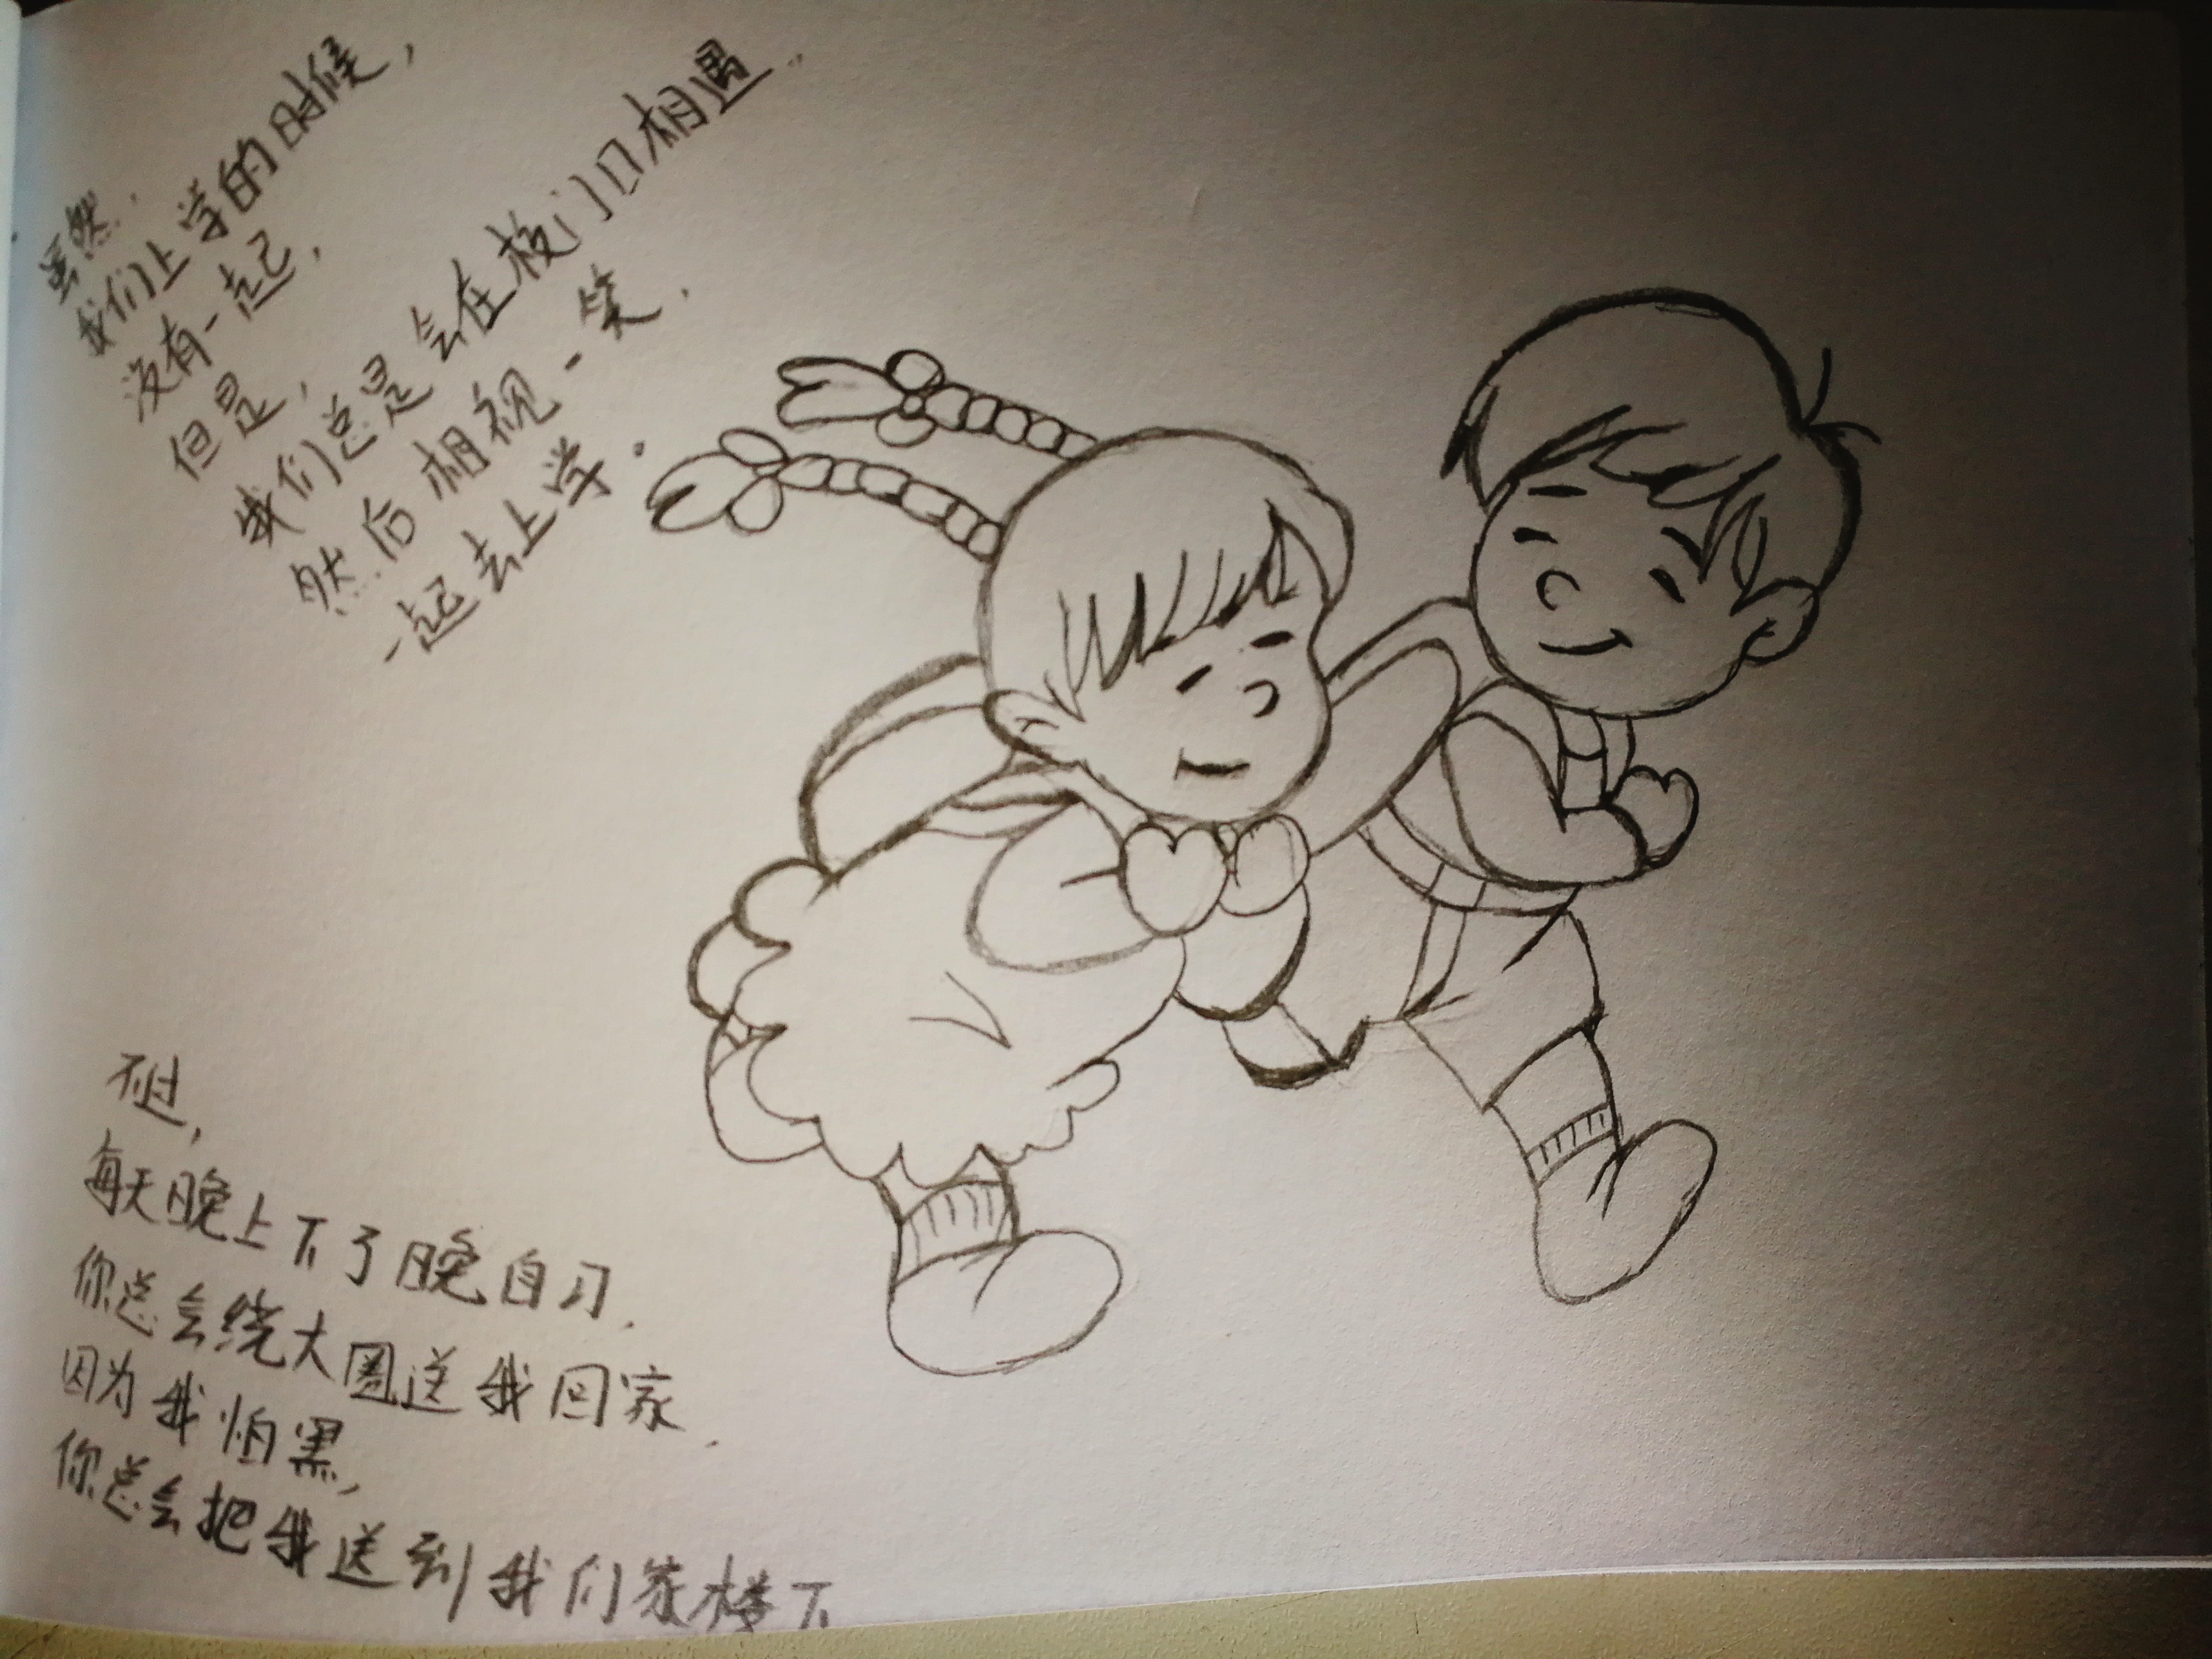 虽然，
我们上学的时候，
没有一起，
但是，
我们总是会在校门口相遇．
然后相视一笑．
一起去上学．
不过，
每天晚上下了晚自习．
你总会绕大圈送我回家．
因为我怕黑，
你总会把我送到我们家楼下